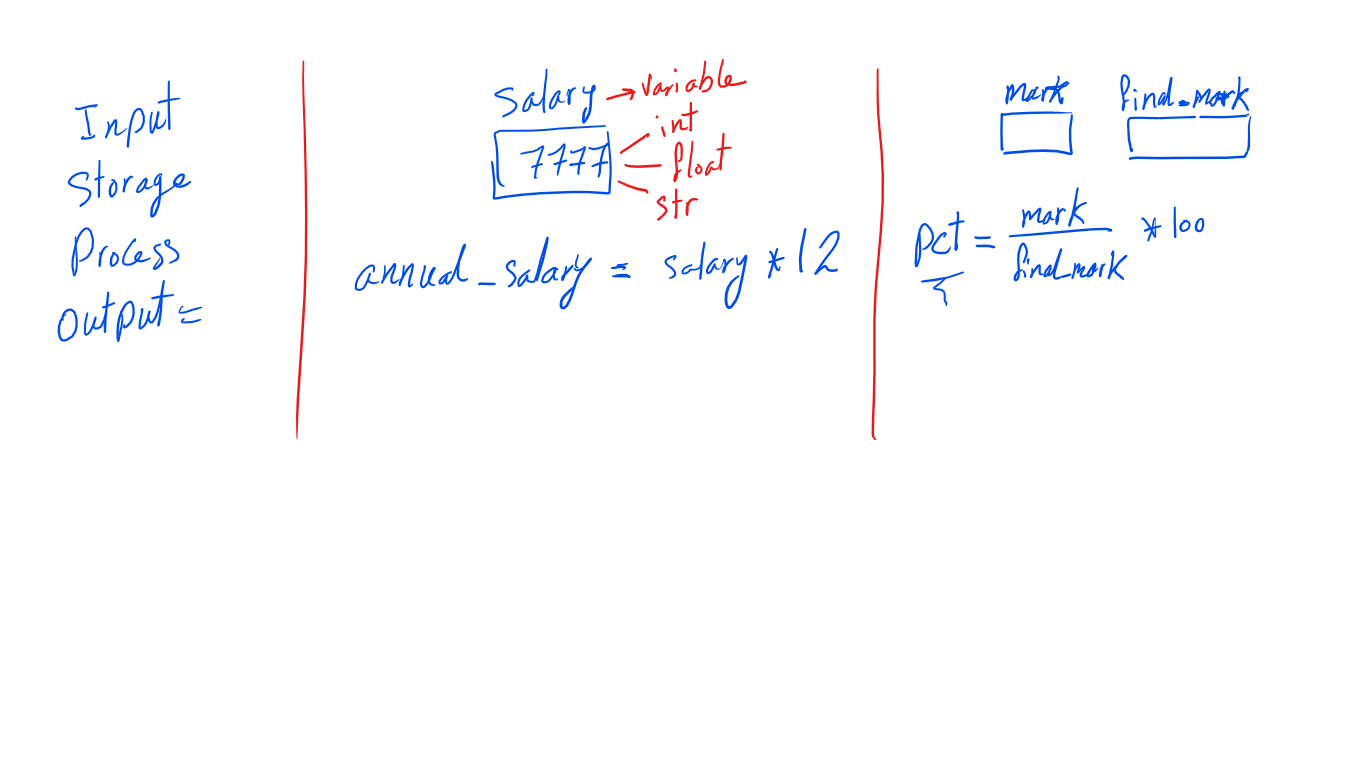 Input
Storage
Process
Output =
Salary → variable
7777
int
float
str
annual_salary = salary * 12
mark final_mark
pct = mark / final_mark * 100